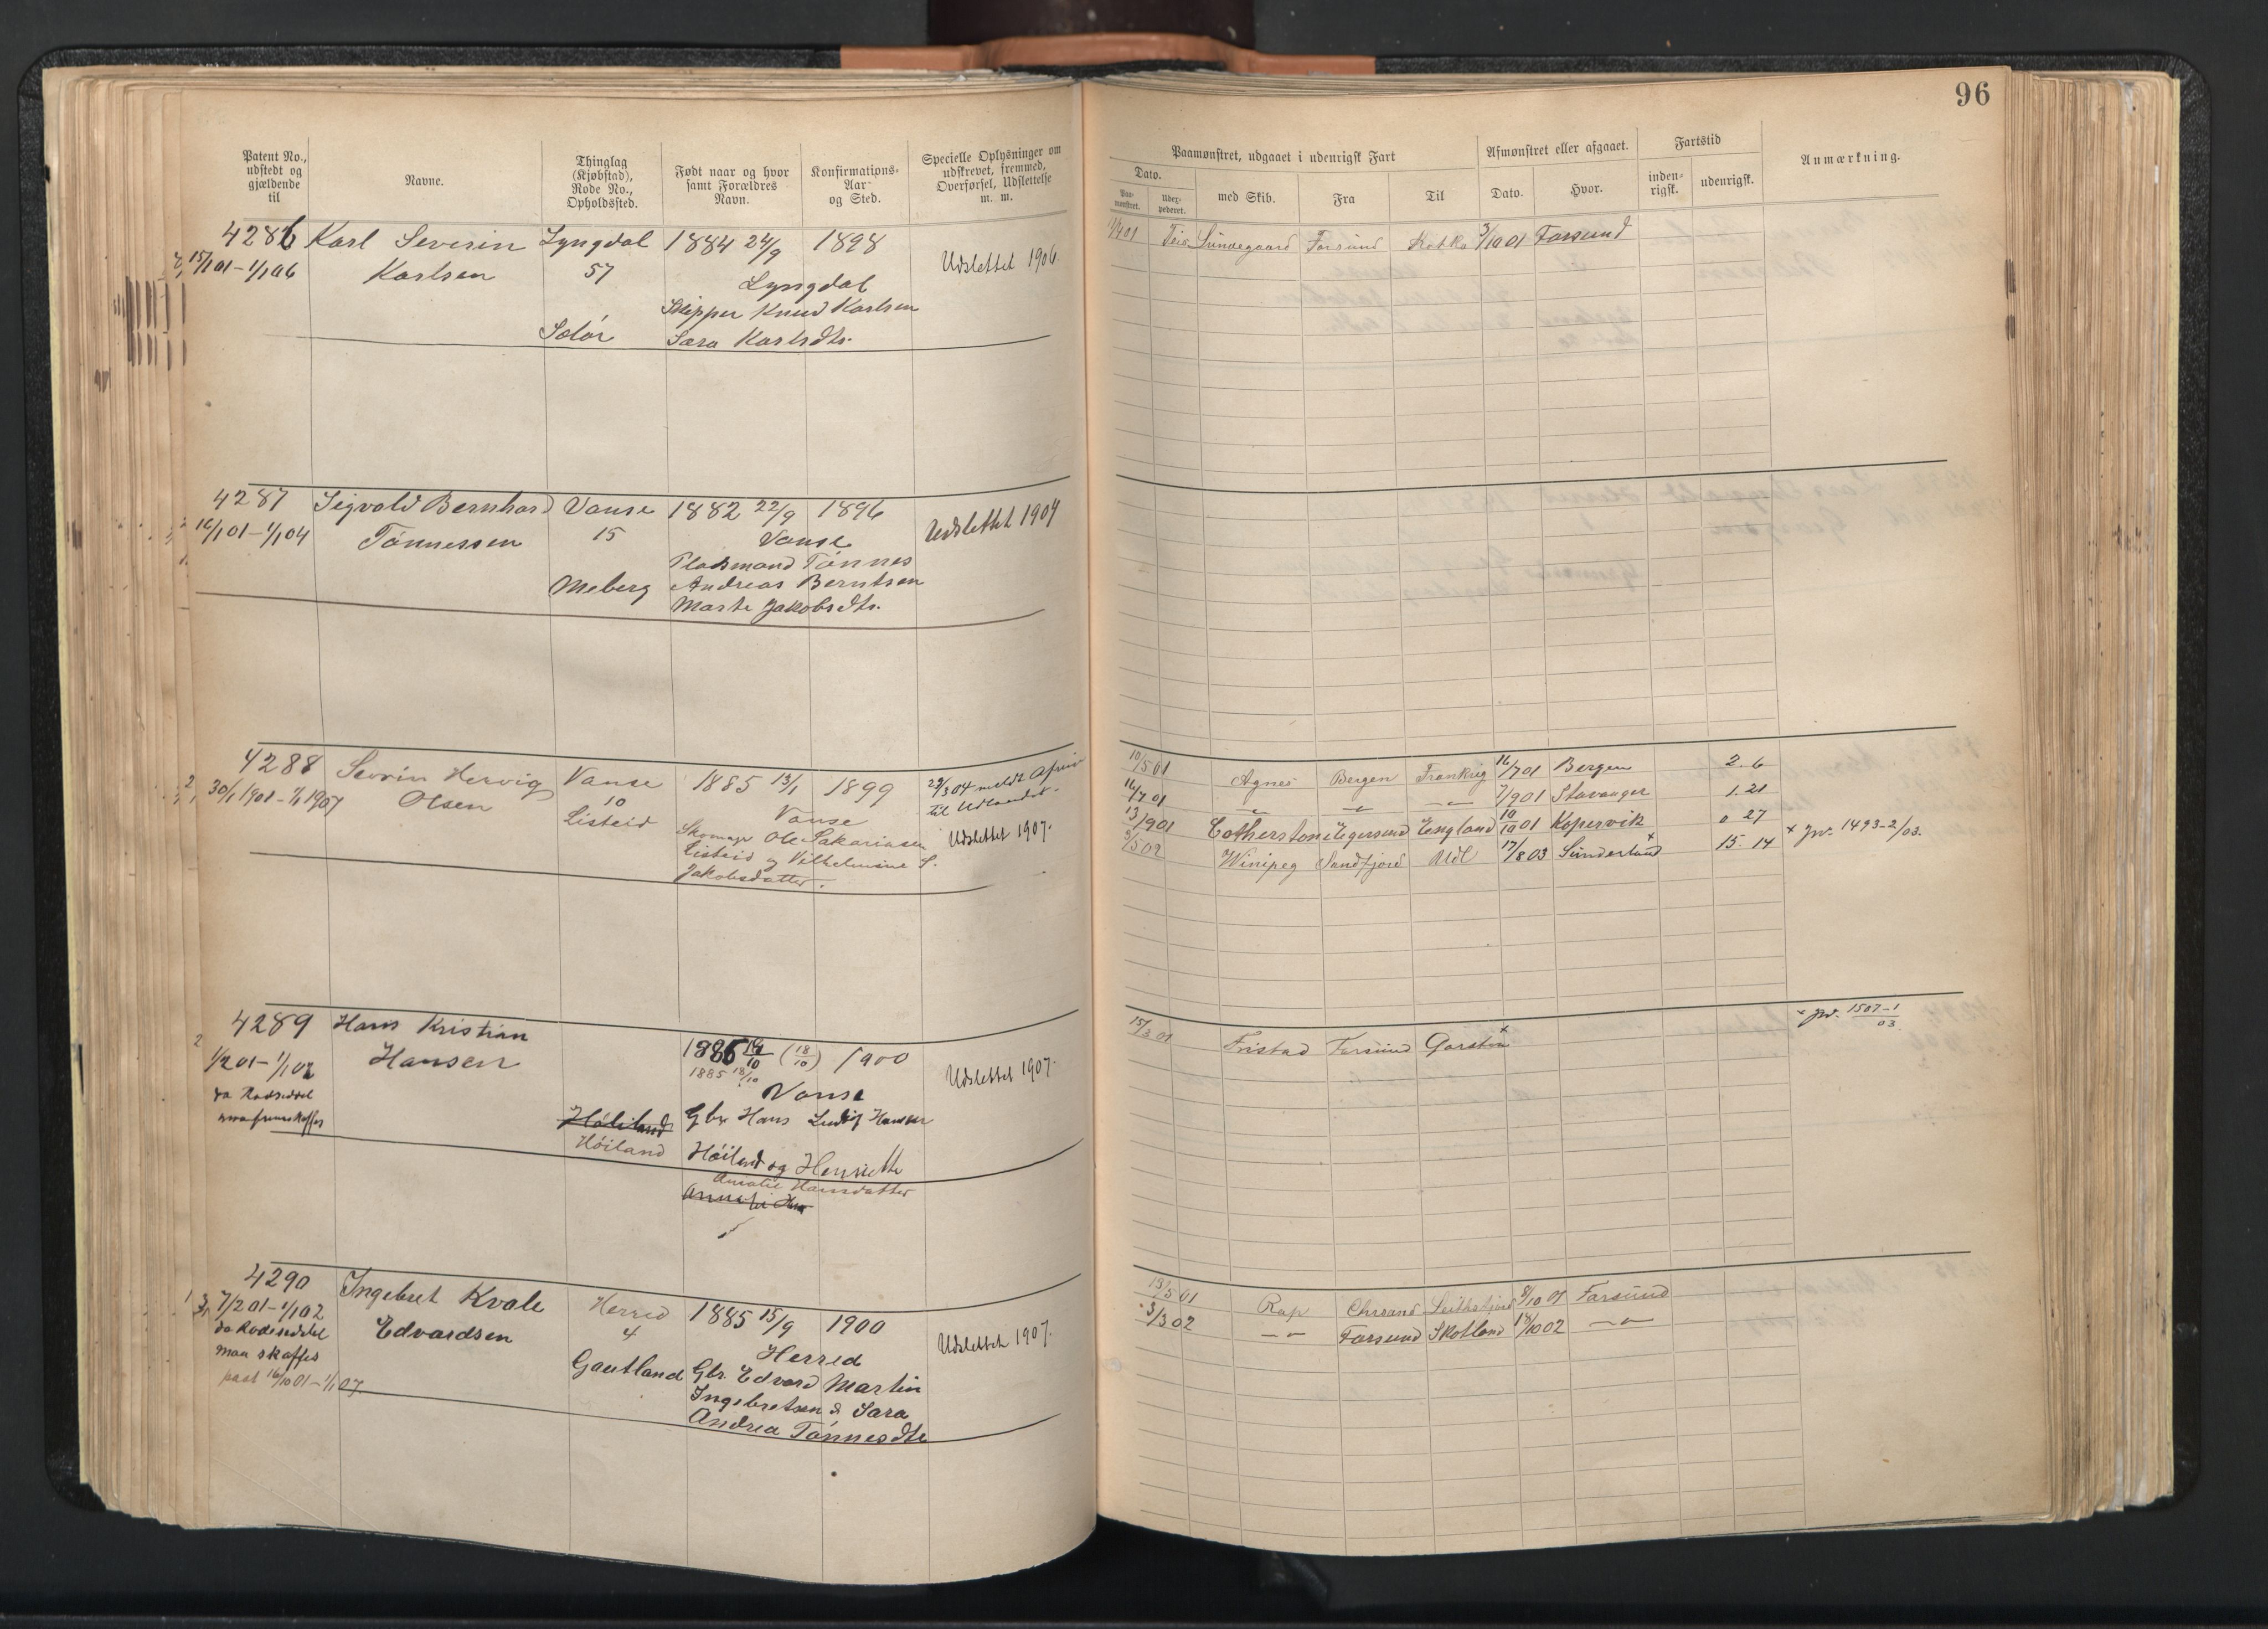 96
Patent No.,
udstedt og
gjældende
til
Navne.
Thinglag
(Kjøbstad),
Rode No.,
Opholdssted.
Født naar og hvor
samt Forældres
Navn.
Konfirmations-
Aar
og Sted.
Specielle Oplysninger om
udskrevet, fremmed,
Overførsel, Udslettelse
m. m.
Paamønstret, udgaaet i udenrigsk Fart
Dato.
Paa-
mønstret.
Uder-
pederet.
med Skib.
Fra
Til
Afmønstret eller afgaaet.
Dato.
Hvor.
Fartstid
inden-
rigsk.
udenrigsk.
Anmærkning.
4286 Karl Severin Lyngdal 1884 24/9 1898
15/1 01 - 1/1 06 Karlsen 57 Lyngdal Udslettet 1906
Skipper Knud Karlsen
Sølør Sara Karlsdtr.
Sundegaard Farsund 3/10 01 Farsund
4287 Sigvald Bernhard Vanse 1882 22/9 1896
16/1 01 - 1/1 04 Tønnessen 15 Vanse Udslettet 1904
Pladsmand Tønnes
Meberg Andreas Berntsen
Marte Jakobsdtr.
4288 Severin Hervig Vanse 1885 13/1 1899
30/1 1901 - 1/1 1907 Olsen 10 Vanse
til Udlandet.
Listeid Ole Sakariasen Udslettet 1907.
Listeid og Vilhelmine S.
Jakobsdatter.
10/5 01 Agnes Bergen Frankrig 16/7 01 Bergen 2. 6
16/7 01 — " — — " — — " — 7/9 01 Stavanger 1. 21
13/9 01 Cotherstone Egersund England 10/10 01 Kopervik 0 27
5/5 02 Winipeg Sandfjord Udl 17/8 03 Sunderland x 15. 14 x Jvr. 1493-2/03.
4289 Hans Kristian
1/2 01 - 1/1 02 Hansen (18/10) 1900
1885 18/10
da Rodseddel Vanse Udslettet 1907.
Høiland Gbr Hans Ludvig Hansen
Høiland Høiland og Henriette
Amalie Hansdatter
15/3 01 Fristad Farsund x Jvr. 1507-1/03.
4290 Ingebret Kvale Herred 1885 15/9 1900
7/2 01 - 1/1 02 Edvardsen 4 Herred Udslettet 1907.
da Rodeseddel
maa skaffes Gautland Gbr. Edvard Martin
16/10 01 - 1/1 07 Ingebretsen & Sara
Andrea Tønnesdtr
13/5 01 Rap Chrsand 8/10 01 Farsund
3/3 02 — " — Farsund Skotland 18/10 02 — " —